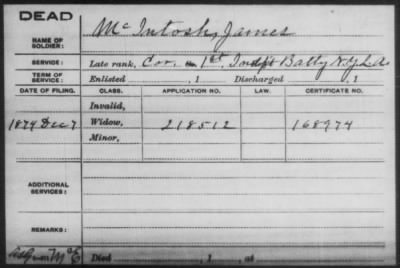 DEAD
NAME OF SOLDIER: McIntosh, James
SERVICE: Late rank, Cor. 1st, Indpt Batty N.Y.L.A.
TERM OF SERVICE: Enlisted , 1 Discharged , 1
DATE OF FILING. CLASS. APPLICATION NO. LAW. CERTIFICATE NO.
Invalid,
1874 Dec 7 Widow, 218512 168974
Minor,
ADDITIONAL SERVICES:
REMARKS:
Died , 1 , at